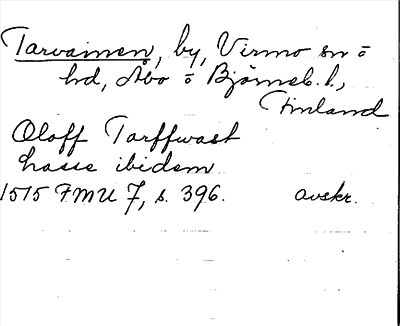 Tarvainen, by, Virmo sn o
hd, Åbo o Björneb. l.,
Finland
Oloff Tarffwast
Lasse ibidem
1515 FMU 7, s. 396. avskr.